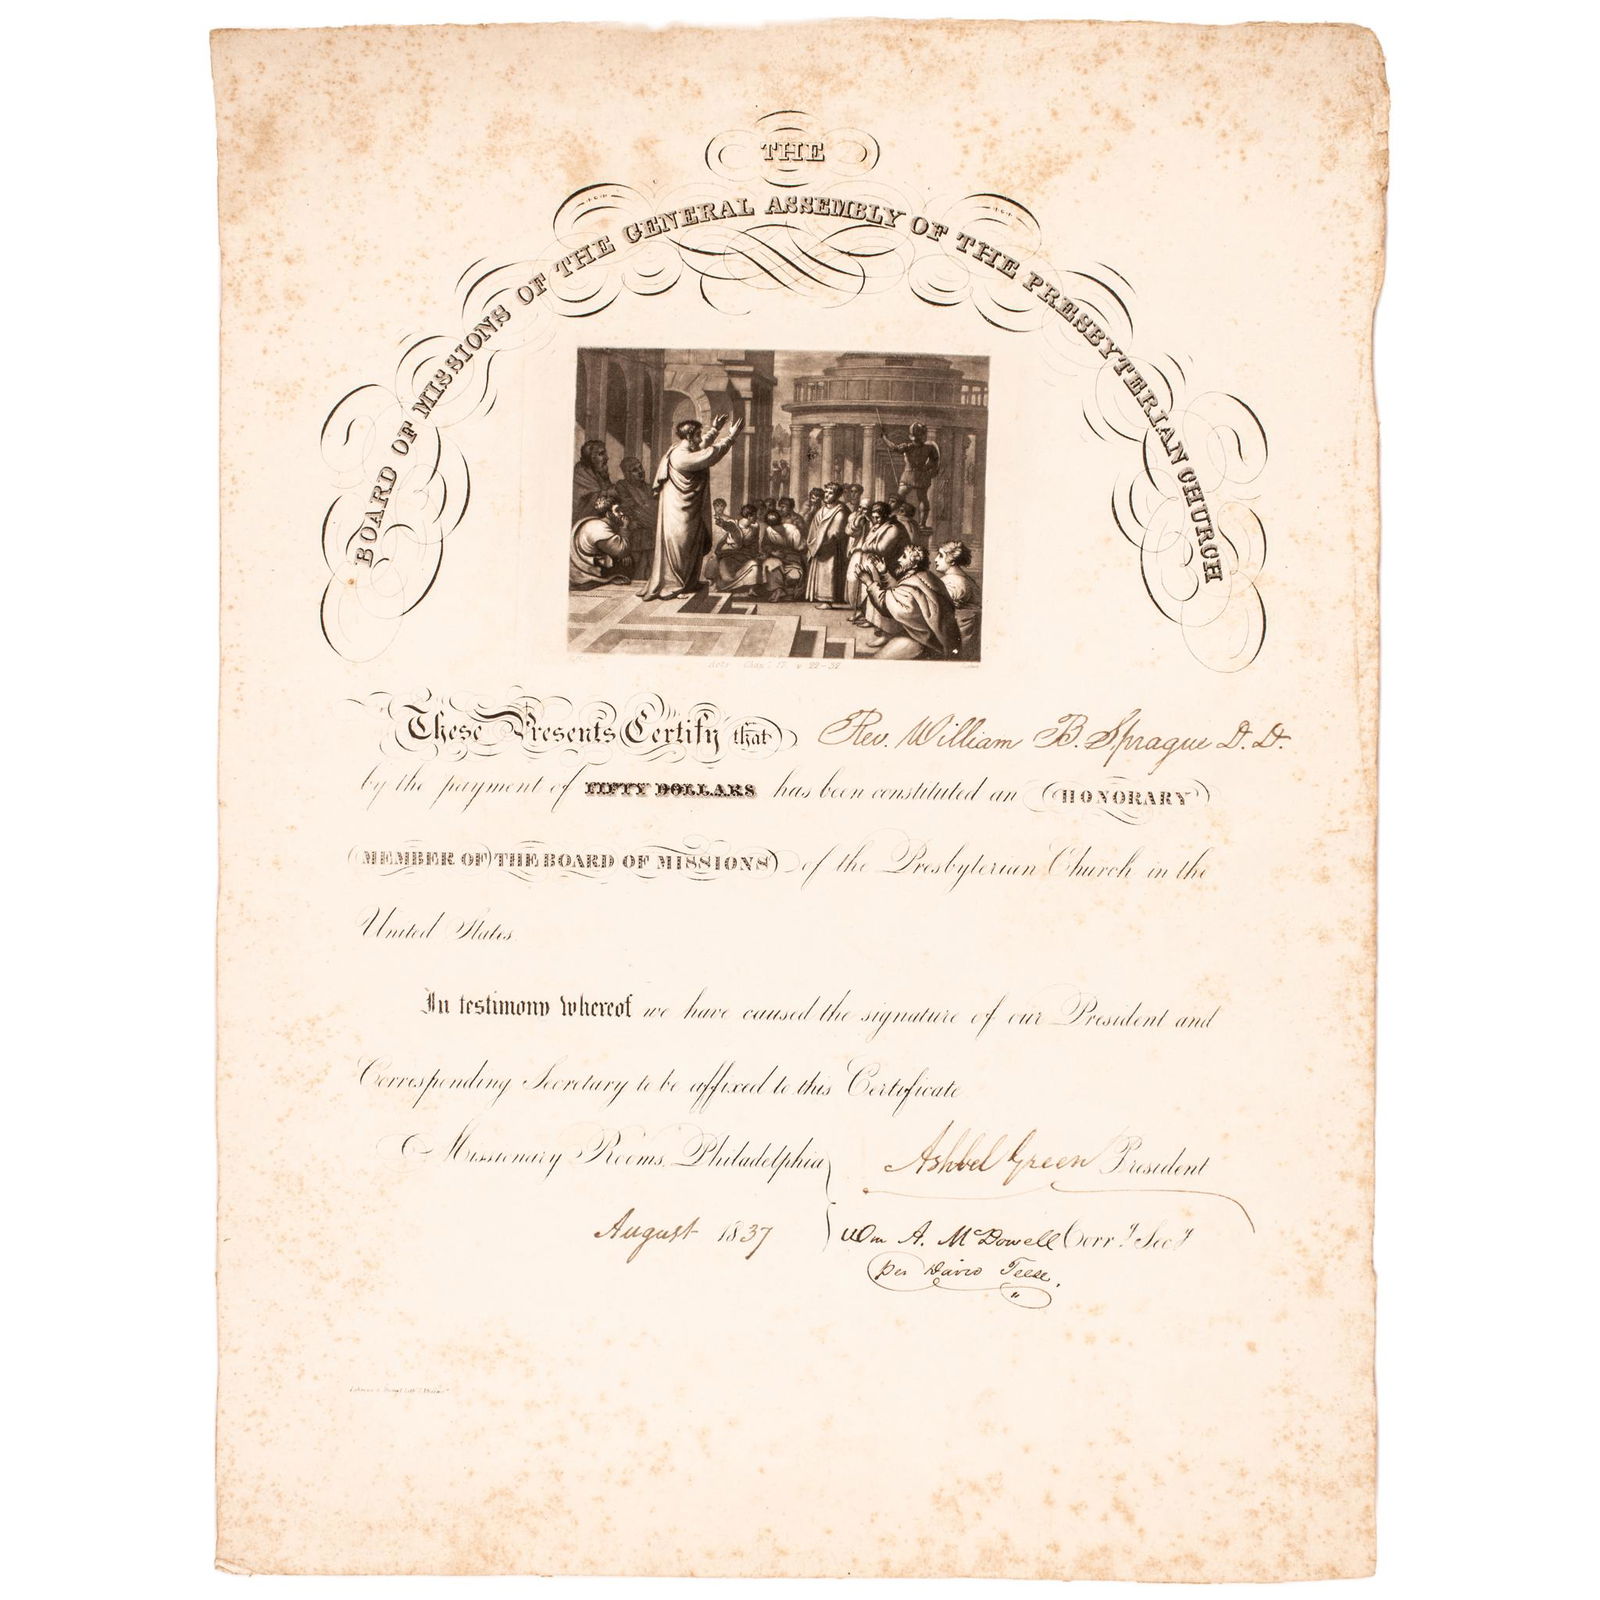 THE
BOARD OF MISSIONS OF THE GENERAL ASSEMBLY OF THE PRESBYTERIAN CHURCH
Acts Chap. 17. v 22-32
These Presents Certify that Rev. William B. Sprague D.D.
by the payment of FIFTY DOLLARS has been constituted an HONORARY
MEMBER OF THE BOARD OF MISSIONS of the Presbyterian Church in the
United States.
In testimony whereof we have caused the signature of our President and
Corresponding Secretary to be affixed to this Certificate
Missionary Rooms, Philadelphia Ashbel Green President
August 1837 Wm A. McDowell Corr.y Sec.y
per David Teese.